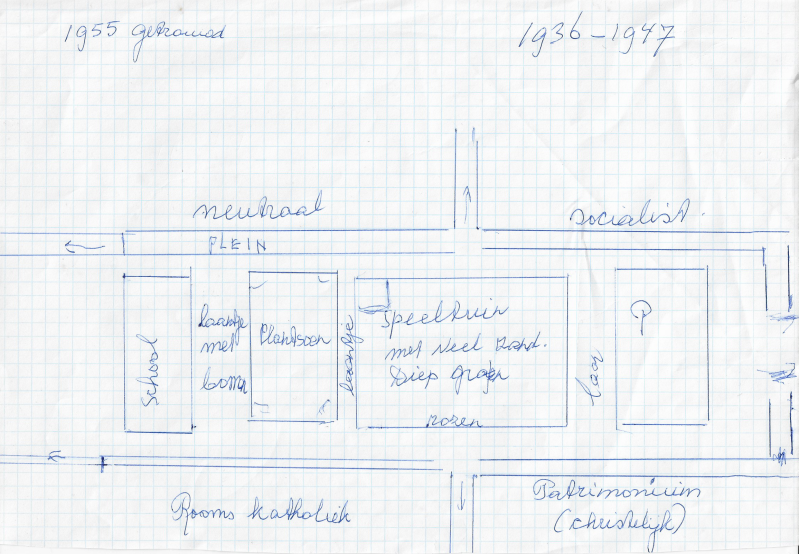 1955 getrouwd
1936-1947
neutraal
socialist.
PLEIN
School
laantje
met
bomen
Plantsoen
laantje
Speeltuin
met veel zand.
Diep graven
rozen
laan
P
Rooms katholiek
Patrimonium
(christelijk)